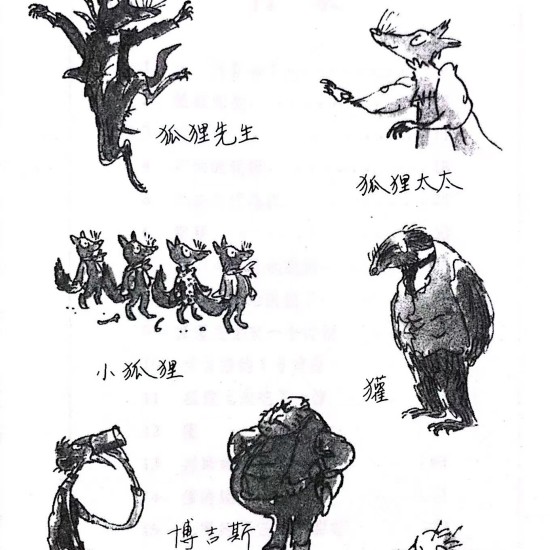 狐狸先生
狐狸太太
小狐狸
獾
博吉斯